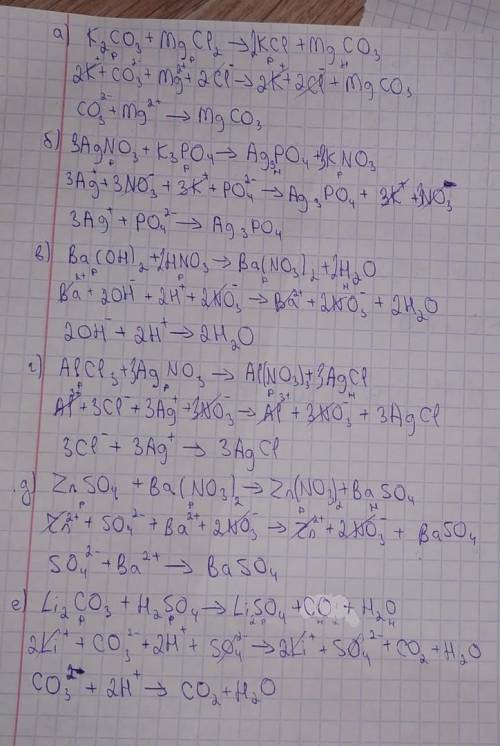 а) K₂CO₃ + MgCl₂ → 2KCl + MgCO₃
р р р н
2K⁺ + CO₃²⁻ + Mg²⁺ + 2Cl⁻ → 2K⁺ + 2Cl⁻ + MgCO₃
CO₃²⁻ + Mg²⁺ → MgCO₃
б) 3AgNO₃ + K₃PO₄ → Ag₃PO₄ + 3KNO₃
р р н р
3Ag⁺ + 3NO₃⁻ + 3K⁺ + PO₄²⁻ → Ag₃PO₄ + 3K⁺ + 3NO₃⁻
3Ag⁺ + PO₄²⁻ → Ag₃PO₄
в) Ba(OH)₂ + 2HNO₃ → Ba(NO₃)₂ + 2H₂O
р р р н
Ba²⁺ + 2OH⁻ + 2H⁺ + 2NO₃⁻ → Ba²⁺ + 2NO₃⁻ + 2H₂O
2OH⁻ + 2H⁺ → 2H₂O
г) AlCl₃ + 3AgNO₃ → Al(NO₃)₃ + 3AgCl
р р р н
Al³⁺ + 3Cl⁻ + 3Ag⁺ + 3NO₃⁻ → Al³⁺ + 3NO₃⁻ + 3AgCl
3Cl⁻ + 3Ag⁺ → 3AgCl
д) ZnSO₄ + Ba(NO₃)₂ → Zn(NO₃)₂ + BaSO₄
р р р н
Zn²⁺ + SO₄²⁻ + Ba²⁺ + 2NO₃⁻ → Zn²⁺ + 2NO₃⁻ + BaSO₄
SO₄²⁻ + Ba²⁺ → BaSO₄
е) Li₂CO₃ + H₂SO₄ → Li₂SO₄ + CO₂ + H₂O
р р р н н
2Li⁺ + CO₃²⁻ + 2H⁺ + SO₄²⁻ → 2Li⁺ + SO₄²⁻ + CO₂ + H₂O
CO₃²⁻ + 2H⁺ → CO₂ + H₂O